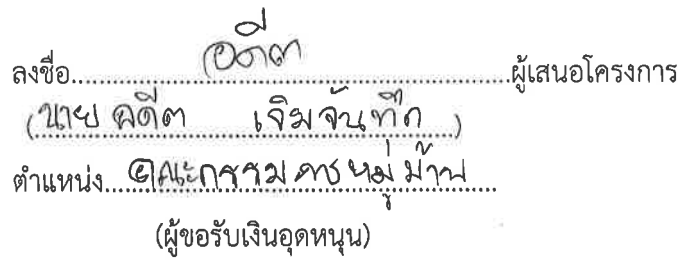 ลงชื่อ อดีต ผู้เสนอโครงการ
(นาย อดีต เจิมจันทึก)
ตำแหน่ง คณะกรรมการหมู่บ้าน
(ผู้ขอรับเงินอุดหนุน)